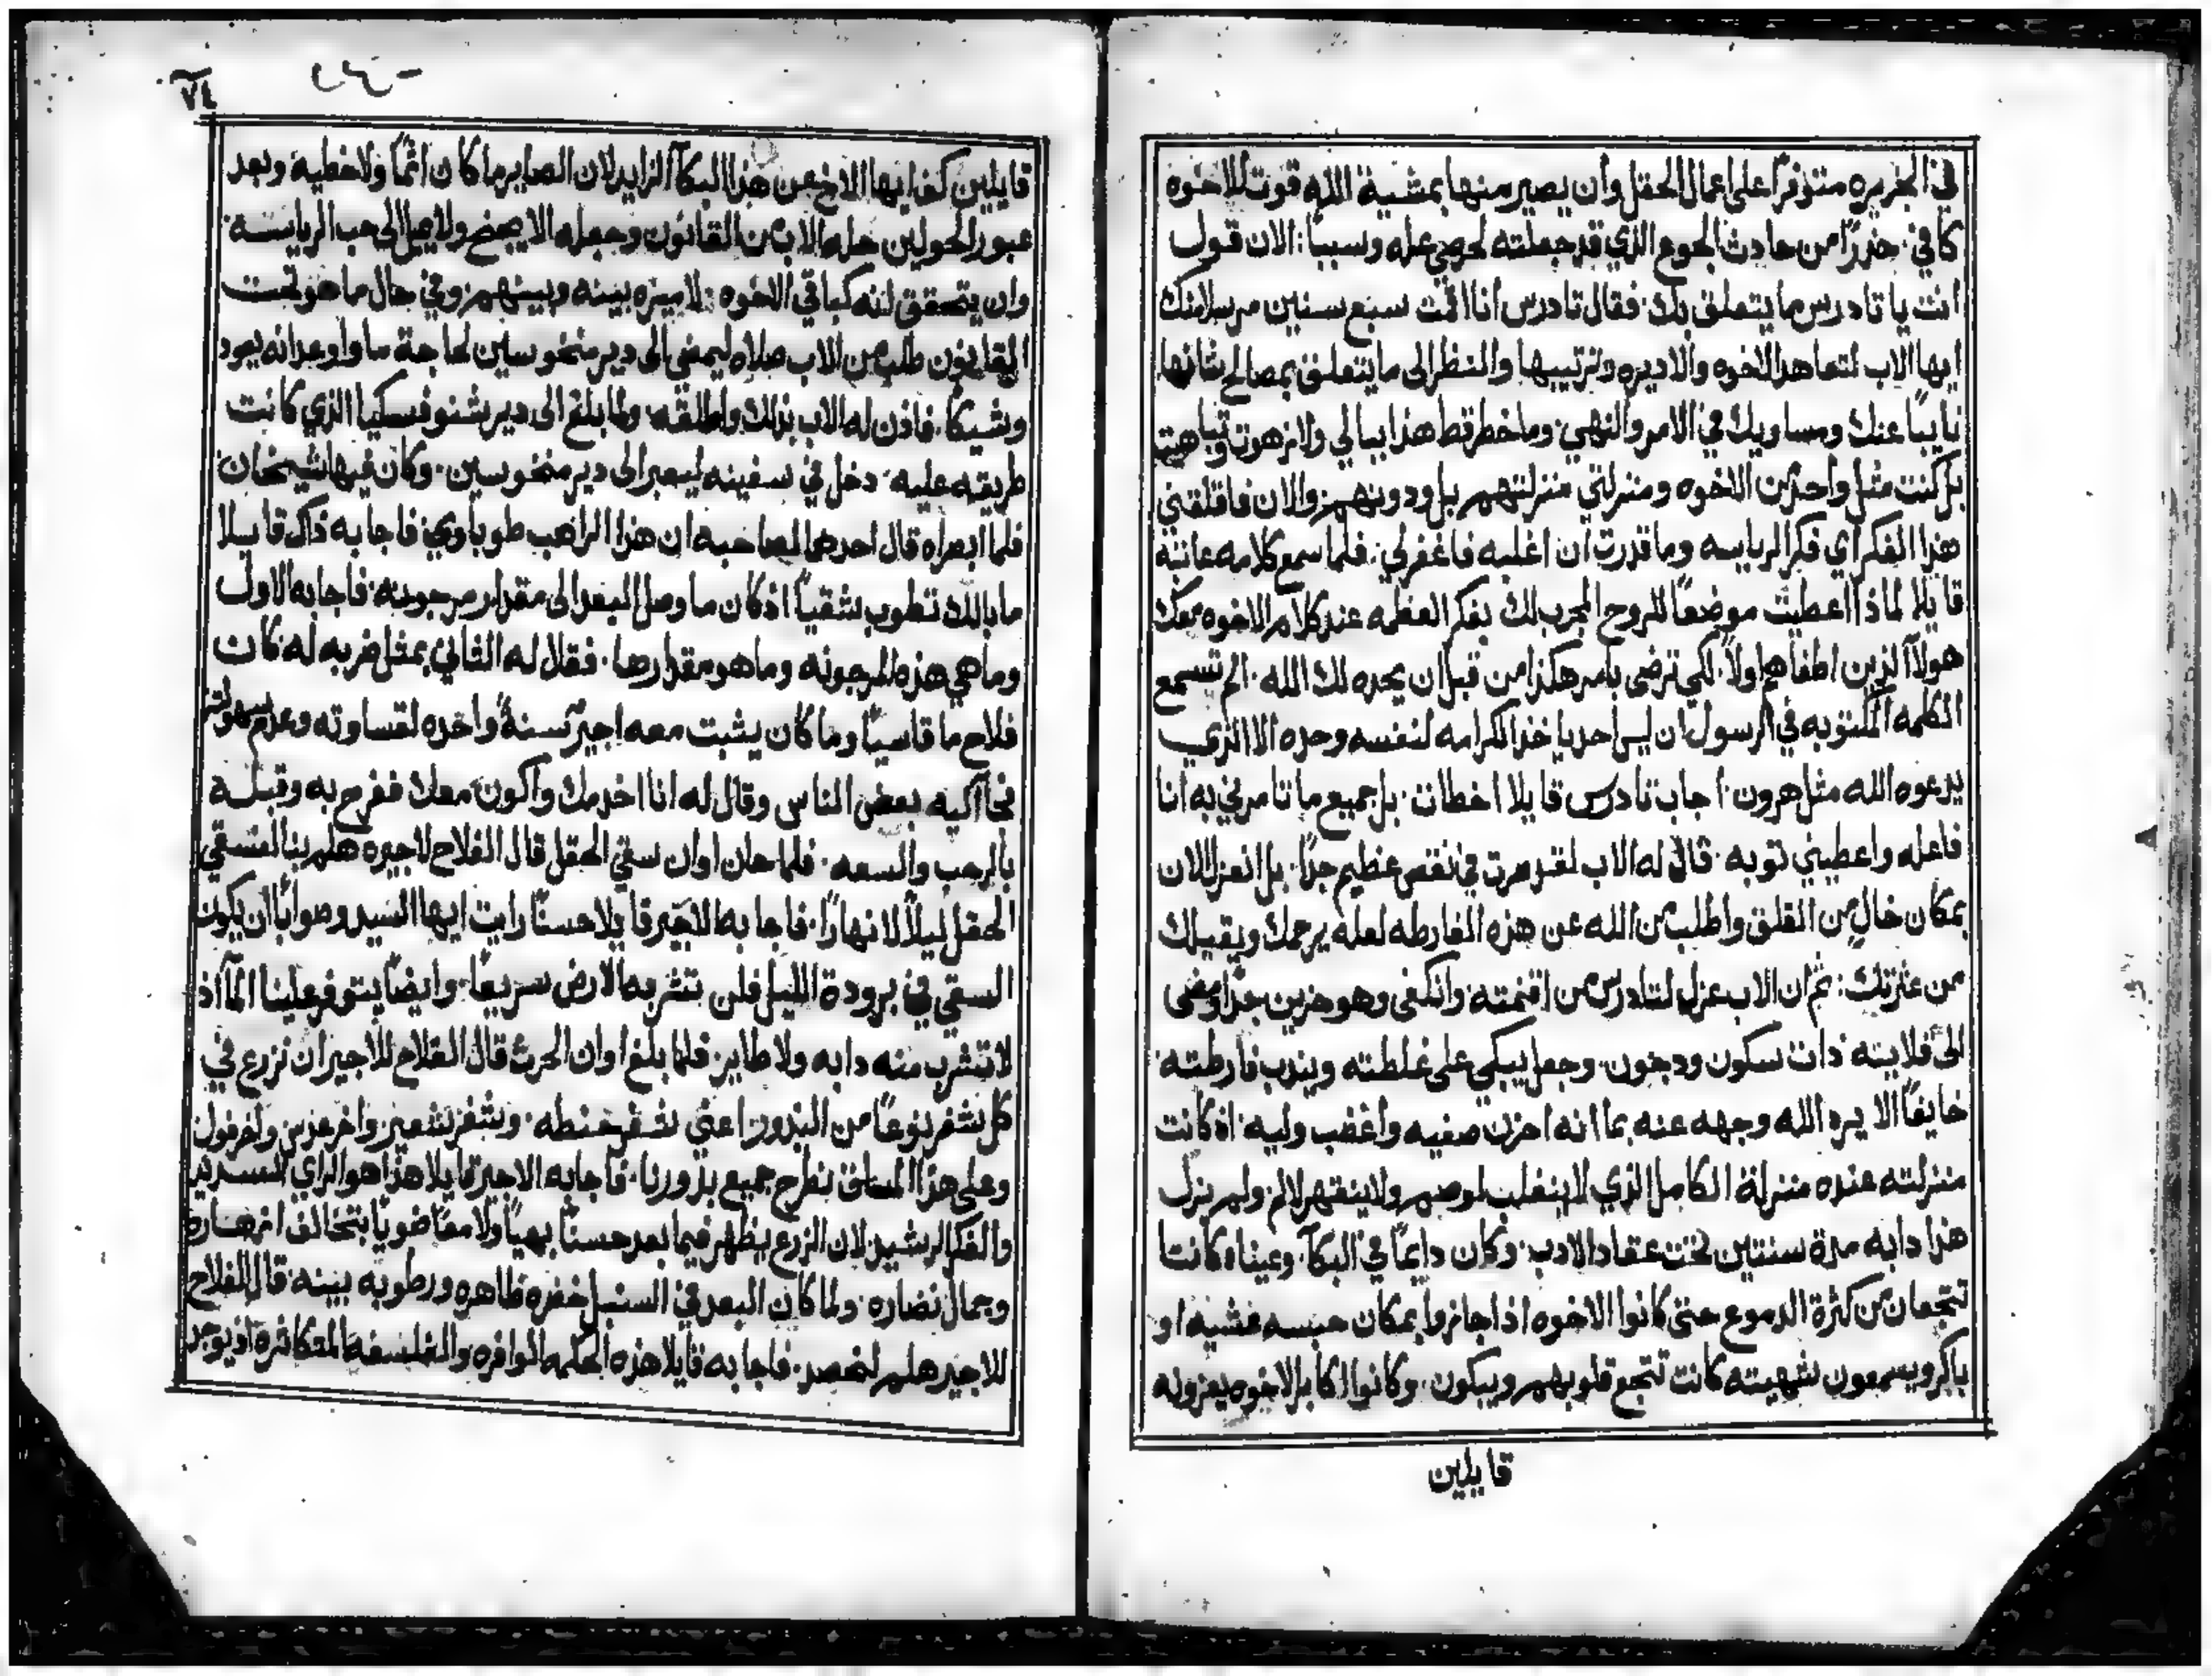 في الجزيره متوفرًا على اعمال الحقل وان يصير منها بمشية الله قوت للاخوه
كافي. حذرًا من حادث الجوع الذي قد جعلته لحرصي عله وسببًا: الان قول
انت يا تادرس ما يتعلق بك. فقال تادرس انا اقمت سبع سنين مرسلا منك
ايها الاب لتعاهد الاخوه والاديره وترتيبها والنظر الى ما يتعلق بمصالح شانها
نايبًا عنك ومساويك في الامر والنهي. وما خطر قط هذا ببالي ولا زهوت وتباهيت
بل كنت مثل واحد من الاخوه ومنزلتي منزلتهم بل ودونهم والان فاقلقني
هذا الفكر اي فكر الرياسه وما قدرت ان اغلبه فاغفر لي. فلما سمع كلامه عاتبه
قايلا لماذا اعطيت موضعًا للروح المجرب لك بفكر العظمه عند كلام الاخوه معك
هولاء الذين اطفاهم اولاً. لكي ترضى بامر هكذا من قبل ان يحده لك الله. الم تسمع
الكلمه المكتوبه في الرسول ان ليس احد ياخذ الكرامه لنفسه وحده الا الذي
يدعوه الله مثل هرون. اجاب تادرس قايلا اخطات. بل جميع ما تامرني به انا
فاعله واعطيني توبه. قال له الاب لقد صرت في نقص عظيم جدًا. بل انعزل الان
بمكان خالٍ من القلق واطلب من الله عن هذه الفارطه لعله يرحمك ويقيلك
من عثرتك: ثم ان الاب عزل لتادرس من اقنمته. وانكفى وهو حزين جدًا ومضى
الى قلايته ذات سكون ودجون. وجعل يبكي على غلطته ويندب فارطته.
خايفًا الا يرد الله وجهه عنه بما انه احزن صفيه واغضب وليه. اذ كانت
منزلته عنده منزلة الكامل الذي لا ينغلب لوصم ولا ينقهر لالم. ولم يزل
هذا دابه مدة سنتين تحت عقاد الادب. وكان دايمًا في البكآ. وعيناه كانتا
تتجعان من كثرة الدموع حتى كانوا الاخوه اذا جازوا بمكان حبسه عشيه او
باكر ويسمعون شهيقه كانت تتجع قلوبهم ويبكون. وكانوا اكابر الاخوه يعزونه
قايلين
٧٤
قايلين كفا ايها الاخ من هذا البكآ الزايد لان الصاير ما كان اثمًا ولا خطيه وبعد
عبور الحولين حله الاب من القانون وجعله الا يجنح ولا يميل الى حب الرياسه.
وان يتحقق انه كباقي الاخوه. لا ميزه بينه وبينهم. وفي حال ما هو تحت
القانون طلب من الاب صلاه ليمضى الى دير منخوسين لحاجة ما واوعد انه يعود
وشيكًا. فاذن له الاب بذلك واطلقه. ولما بلغ الى دير شنوفسكيا الذي كانت
طريقه عليه. دخل في سفينه ليعبر الى دير منخوسين. وكان فيها شيخان
فلما ابصراه قال احدهما لصاحبه ان هذا الراهب طوباوي. فاجابه ذاك قايلا
ما بالك تطوب شقيًا اذ كان ما وصل البعد الى مقدار مرجونه. فاجابه الاول
وما هي هذه المرجونه وما هو مقدارها. فقال له الثاني بمثل ضربه له كان
فلاح ما قاسيًا وما كان يثبت معه اجير سنةً واحده لقساوته وعدم سهولته
فجآ اليه بعض الناس وقال له انا اخدمك واكون معك ففرح به وقبله
بالرحب والسعه. فلما حان اوان سقي الحقل قال الفلاح لاجيره هلم بنا لنسقي
الحقل ليلاً لا نهارًا. فاجابه الاجير قايلا حسنًا رايت ايها السيد وصوابًا ان يكون
السقي في برودة الليل فلن تشربه الارض سريعًا. وايضًا يتوفر علينا المآ اذ
لا تشرب منه دابه ولا طاير. فلما بلغ اوان الحرث قال الفلاح للاجير ان نزرع في
كل شفر نوعًا من البذور. اعني شفر حنطه. وشفر شعير. واخر عدس واخر فول
وعلى هذا المساق نطرح جميع بذورنا. فاجابه الاجير قايلا هذا هو الراي السديد
والفكر الرشيد لان الزرع يظهر فيما بعد حسنًا بهيًا ولامعًا ضويًا بتخالف ازهاره
وجمال نضاره. ولما كان البعد في السنبل خضره ظاهره ورطوبه بينه. قال الفلاح
للاجير هلم لنحصد. فاجابه قايلا هذه الحكمه الوافره والفلسفه المتكاثره اذ يوجد